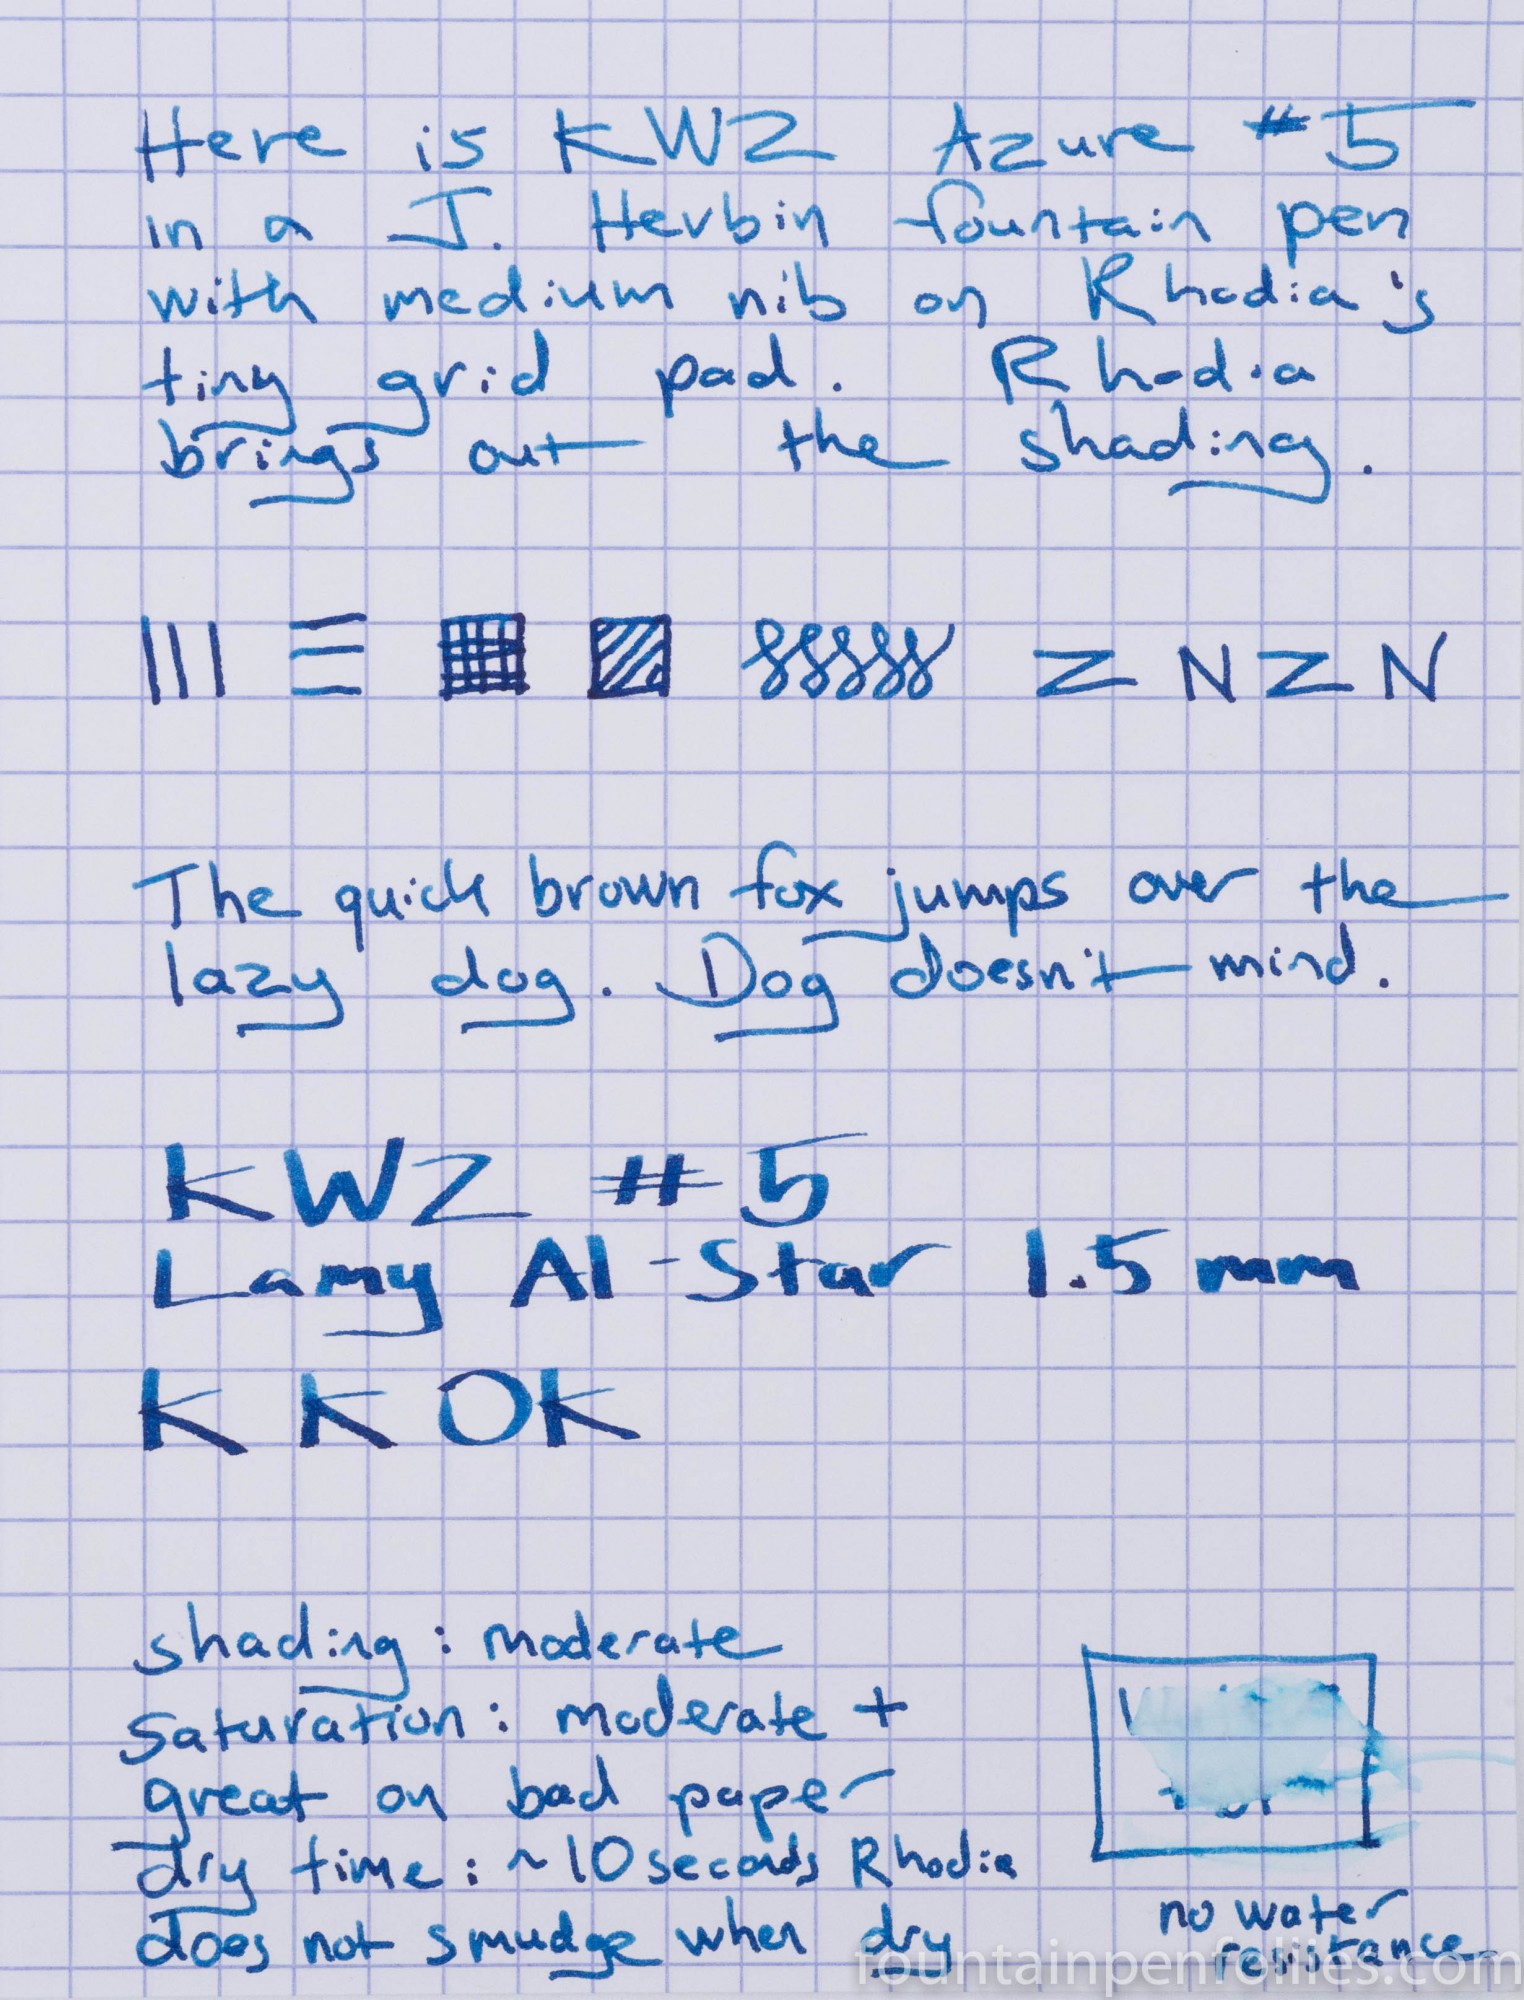 Here is KWZ Azure #5
in a J. Herbin fountain pen
with medium nib on Rhodia's
tiny grid pad. Rhodia
brings out the shading.
Z N Z N
The quick brown fox jumps over the
lazy dog. Dog doesn't mind.
KWZ #5
Lamy Al-Star 1.5 mm
K K OK
shading: moderate
saturation: moderate +
great on bad paper
dry time: ~10 seconds Rhodia
does not smudge when dry
no water
resistance
fountainpenfollies.com